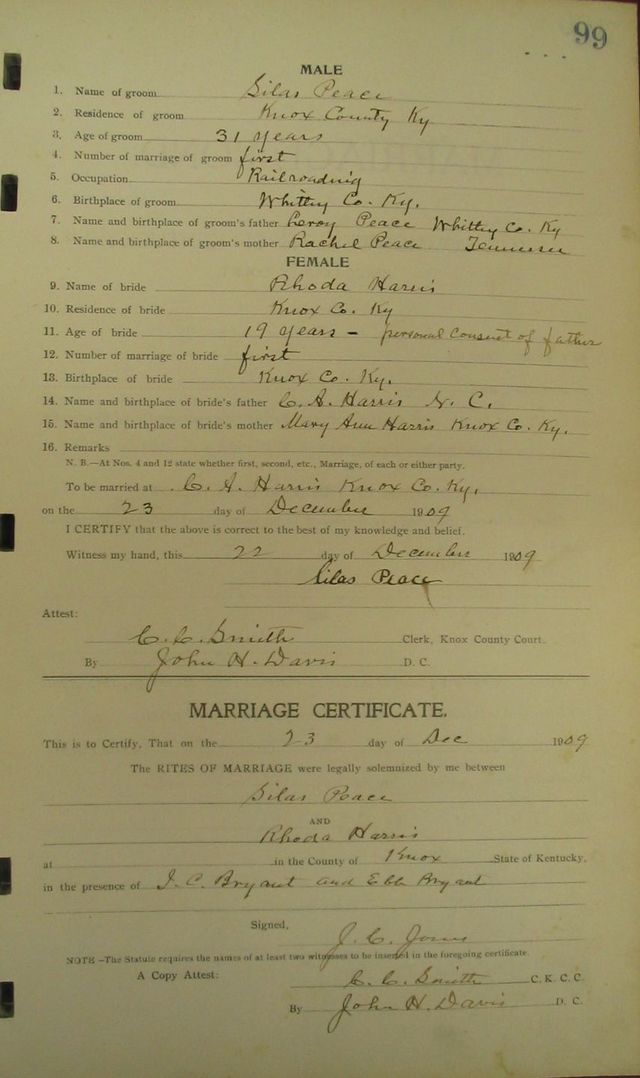 99
MALE
1. Name of groom Silas Peace
2. Residence of groom Knox County Ky
3. Age of groom 31 years
4. Number of marriage of groom first
5. Occupation Railroading
6. Birthplace of groom Whitley Co. Ky.
7. Name and birthplace of groom's father Leroy Peace Whitley Co. Ky
8. Name and birthplace of groom's mother Rachel Peace Tennessee
FEMALE
9. Name of bride Rhoda Harris
10. Residence of bride Knox Co. Ky
11. Age of bride 19 years - personal consent of father
12. Number of marriage of bride first
13. Birthplace of bride Knox Co. Ky.
14. Name and birthplace of bride's father C. A. Harris N. C.
15. Name and birthplace of bride's mother Mary Ann Harris Knox Co. Ky.
16. Remarks
N. B.—At Nos. 4 and 12 state whether first, second, etc., Marriage, of each or either party.
To be married at C. A. Harris Knox Co. Ky,
on the 23 day of December 1909
I CERTIFY that the above is correct to the best of my knowledge and belief.
Witness my hand, this 22 day of December 1909
Silas Peace
Attest:
C. C. Smith Clerk, Knox County Court.
By John H. Davis D. C.
MARRIAGE CERTIFICATE.
This is to Certify, That on the 23 day of Dec 1909
The RITES OF MARRIAGE were legally solemnized by me between
Silas Peace
AND
Rhoda Harris
at in the County of Knox State of Kentucky,
in the presence of Bryant and Bryant
Signed,
J. C. Jones
NOTE —The Statute requires the names of at least two witnesses to be inserted in the foregoing certificate.
A Copy Attest: C. C. Smith C. K. C. C.
By John H. Davis D. C.